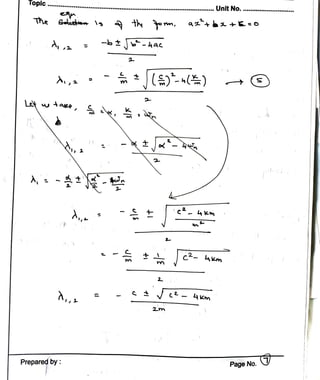 Topic
Unit No.
eqn
The Solution is of the form. ax² + bx + c = 0
λ₁,₂ = -b ± √(b² - 4ac) / 2
λ₁,₂ = - c/m ± √((c/m)² - 4(k/m)) / 2 → (5)
Let us take, c/m = α, k/m = ωn
λ₁,₂ = -α ± √(α² - 4ωn) / 2
λ₁ = - α/2 ±
λ₁,₂ = - c/m ± √((c² - 4km)/m²) / 2
= - c/m ± 1/m √(c² - 4km) / 2
λ₁,₂ = - c ± √(c² - 4km) / 2m
Prepared by :
Page No. 7